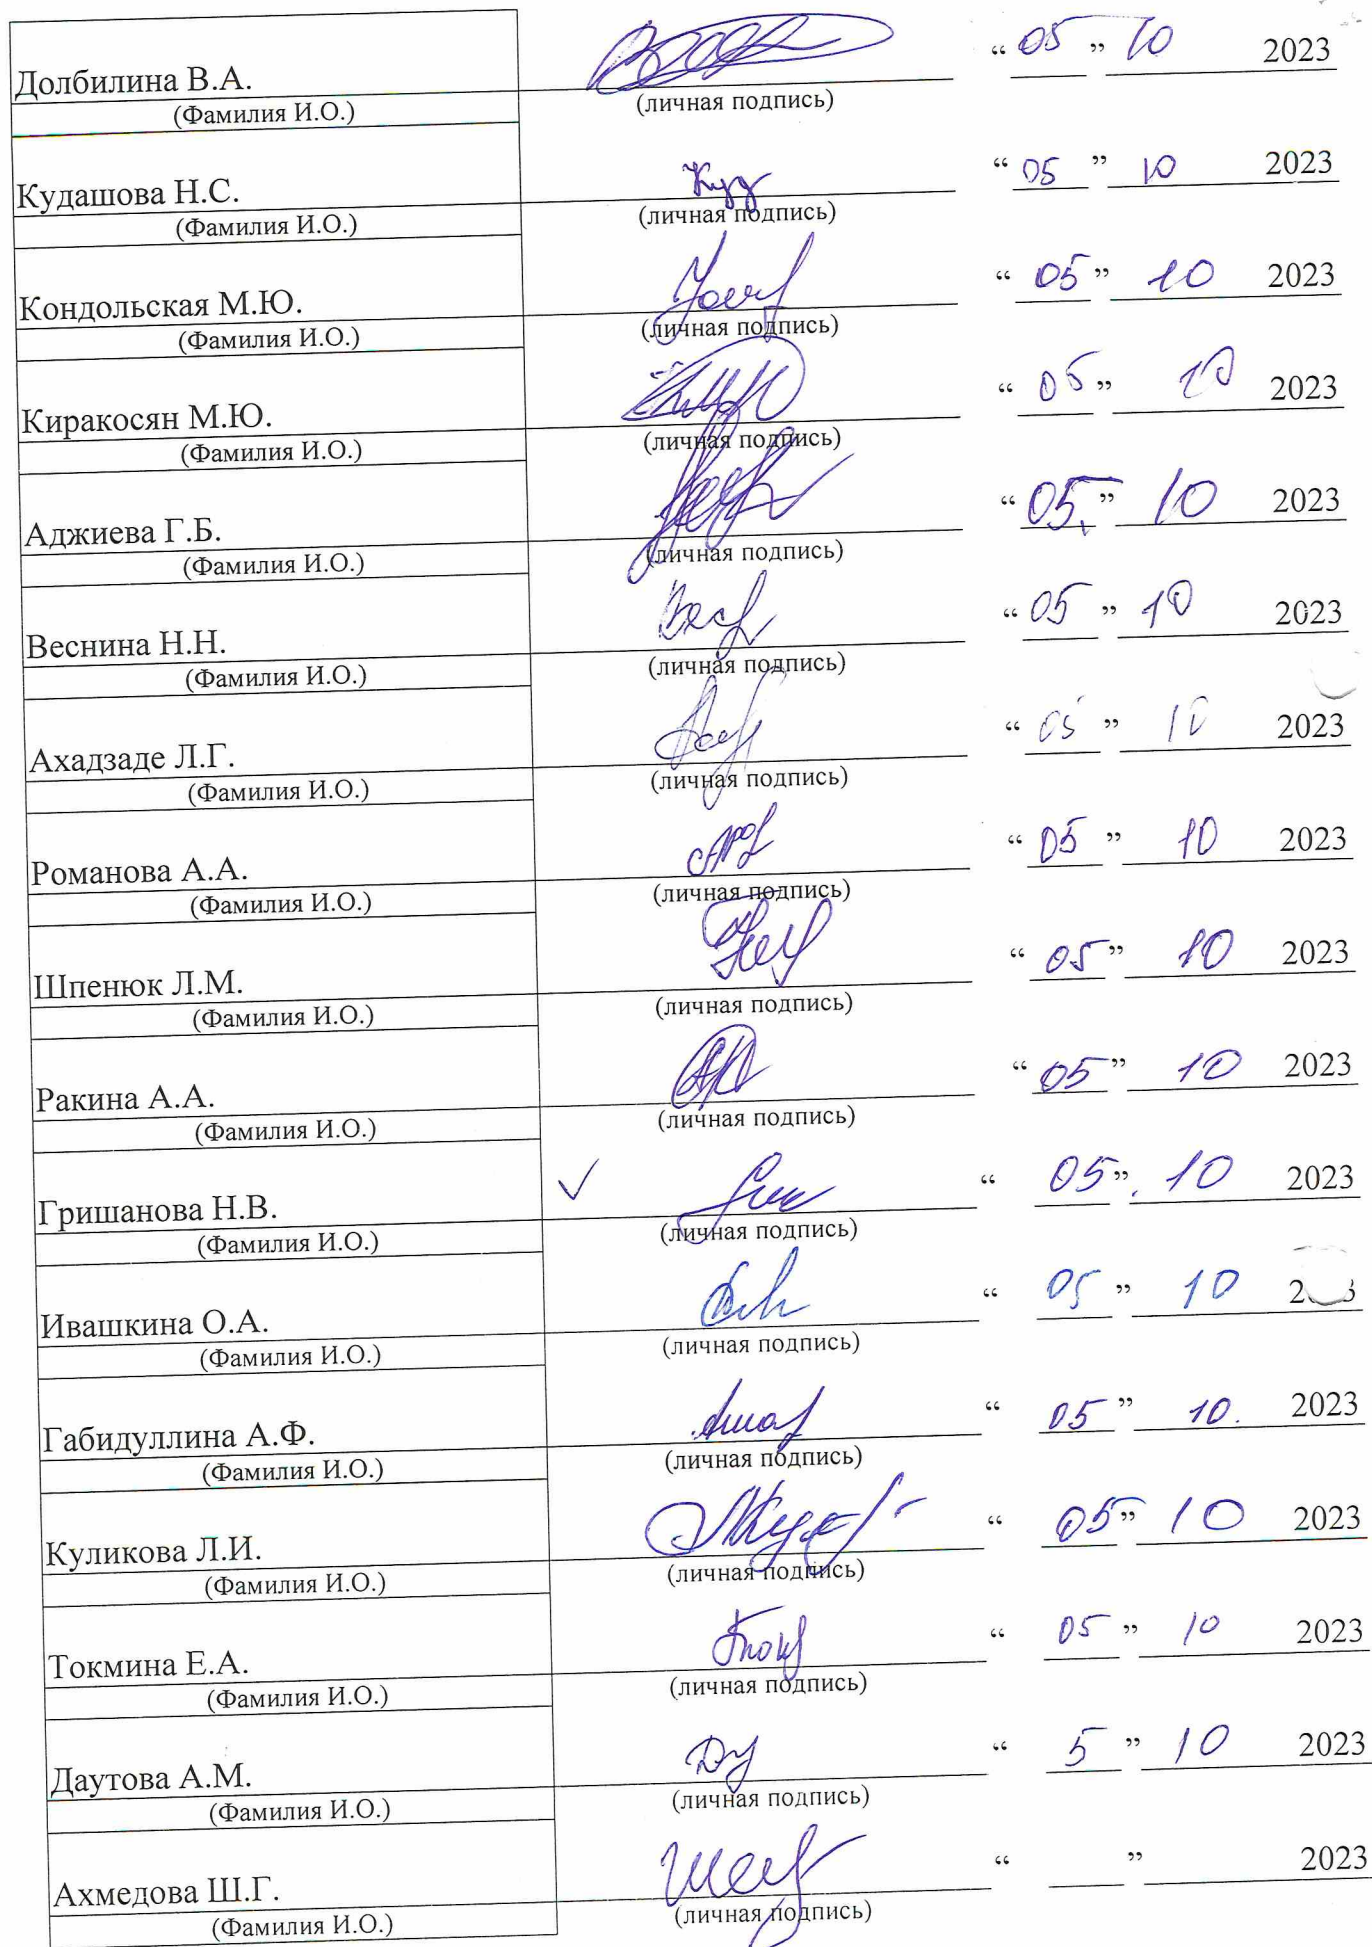 Долбилина В.А. “ 05 ” 10 2023
(Фамилия И.О.) (личная подпись)
Кудашова Н.С. Куд “ 05 ” 10 2023
(Фамилия И.О.) (личная подпись)
Кондольская М.Ю. “ 05 ” 10 2023
(Фамилия И.О.) (личная подпись)
Киракосян М.Ю. “ 05 ” 10 2023
(Фамилия И.О.) (личная подпись)
Аджиева Г.Б. “ 05. ” 10 2023
(Фамилия И.О.) (личная подпись)
Веснина Н.Н. “ 05 ” 10 2023
(Фамилия И.О.) (личная подпись)
Ахадзаде Л.Г. “ 05 ” 10 2023
(Фамилия И.О.) (личная подпись)
Романова А.А. “ 05 ” 10 2023
(Фамилия И.О.) (личная подпись)
Шпенюк Л.М. “ 05 ” 10 2023
(Фамилия И.О.) (личная подпись)
Ракина А.А. “ 05 ” 10 2023
(Фамилия И.О.) (личная подпись)
Гришанова Н.В. “ 05 ” 10 2023
(Фамилия И.О.) (личная подпись)
Ивашкина О.А. “ 05 ” 10
(Фамилия И.О.) (личная подпись)
Габидуллина А.Ф. “ 05 ” 10. 2023
(Фамилия И.О.) (личная подпись)
Куликова Л.И. “ 05 ” 10 2023
(Фамилия И.О.) (личная подпись)
Токмина Е.А. “ 05 ” 10 2023
(Фамилия И.О.) (личная подпись)
Даутова А.М. “ 5 ” 10 2023
(Фамилия И.О.) (личная подпись)
Ахмедова Ш.Г. “ ” 2023
(Фамилия И.О.) (личная подпись)